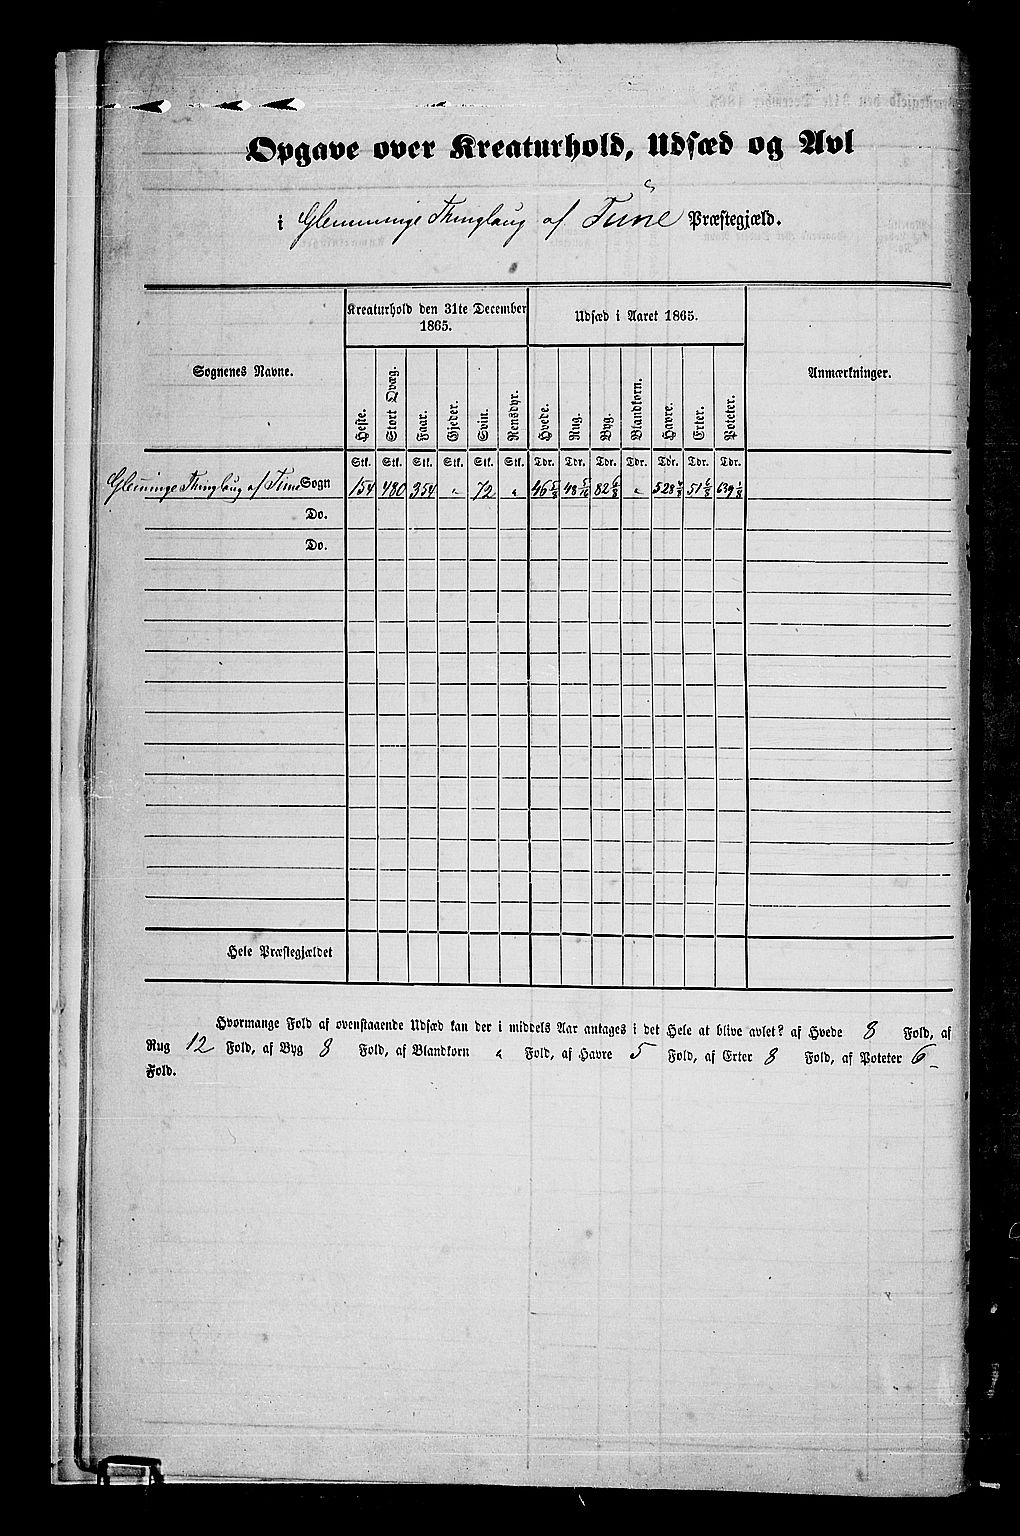 Opgave over Kreaturhold, Udsæd og Avl
i Glemminge Thinglaug af Tune Præstegjæld.
Sognenes Navne.
Kreaturhold den 31te December
1865.
Udsæd i Aaret 1865.
Anmærkninger.
Heste. Stort Qvæg. Faar. Gjeder. Svin. Rensdyr. Hvede. Rug. Byg. Blandkorn. Havre. Erter. Poteter.
Stk. Stk. Stk. Stk. Stk. Stk. Tdr. Tdr. Tdr. Tdr. Tdr. Tdr. Tdr.
Glem̄inge Thinglaug af Tune Sogn 154 480 354 " 72 " 46 5/8 48 5/16 82 6/8 " 528 4/8 51 6/8 639 1/8
Do.
Do.
Hele Præstegjældet
Hvormange Fold af ovenstaaende Udsæd kan der i middels Aar antages i det Hele at blive avlet? af Hvede 8 Fold, af
Rug 12 Fold, af Byg 8 Fold, af Blandkorn " Fold, af Havre 5 Fold, af Erter 8 Fold, af Poteter 6
Fold.